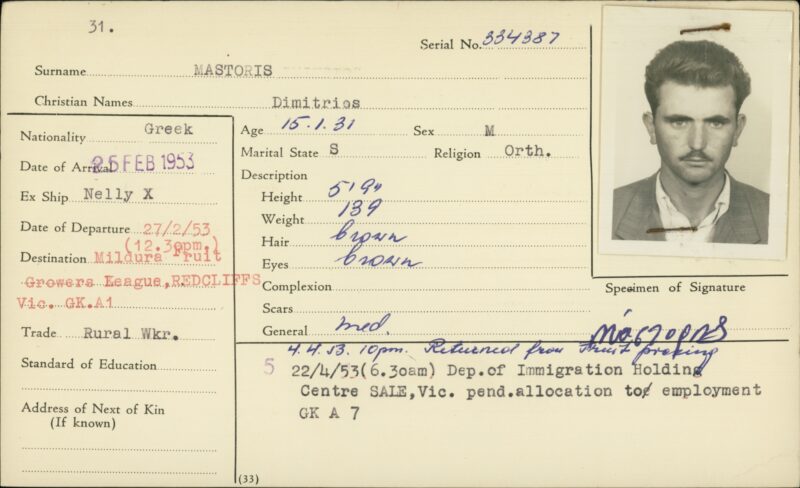 31.
Serial No. 334387
Surname MASTORIS
Christian Names Dimitrios
Nationality Greek
Date of Arrival 25 FEB 1953
Ex Ship Nelly X
Date of Departure 27/2/53
(12.30pm.)
Destination Mildura Fruit
Growers League, REDCLIFFS
Vic. GK.A1
Trade Rural Wkr.
Standard of Education
Address of Next of Kin
(If known)
Age 15.1.31 Sex M
Marital State S Religion Orth.
Description
Height 5'9"
Weight 139
Hair brown
Eyes brown
Complexion
Scars
General med.
Specimen of Signature
4.4.53. 10pm. Returned from Fruit picking
5 22/4/53(6.30am) Dep.of Immigration Holding
Centre SALE,Vic. pend.allocation to employment
GK A 7
(33)